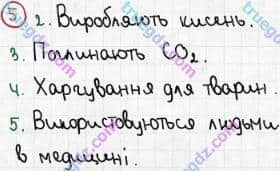 5 2. Виробляють кисень.
3. Поглинають CO₂.
4. Харчування для тварин.
5. Використовуються людьми
в медицині.